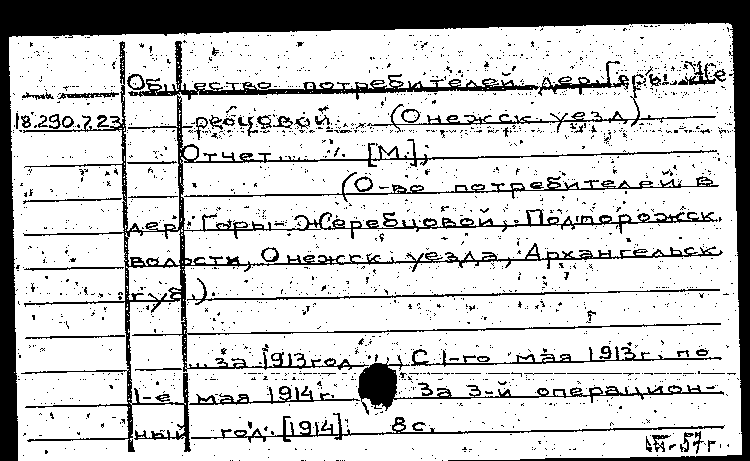 Общество потребителей дер. Горы Же-
18.290.723 ребцовой (Онежск. уезд).
Отчет... [М.];
(О-во потребителей в
дер. Горы-Жеребцовой, Подпорожск.
волости, Онежск. уезда, Архангельск.
губ.).
...за 1913 год... С 1-го мая 1913г. по
1-е мая 1914г. За 3-й операцион-
ный год. [1914]. 8 с.
57 г.